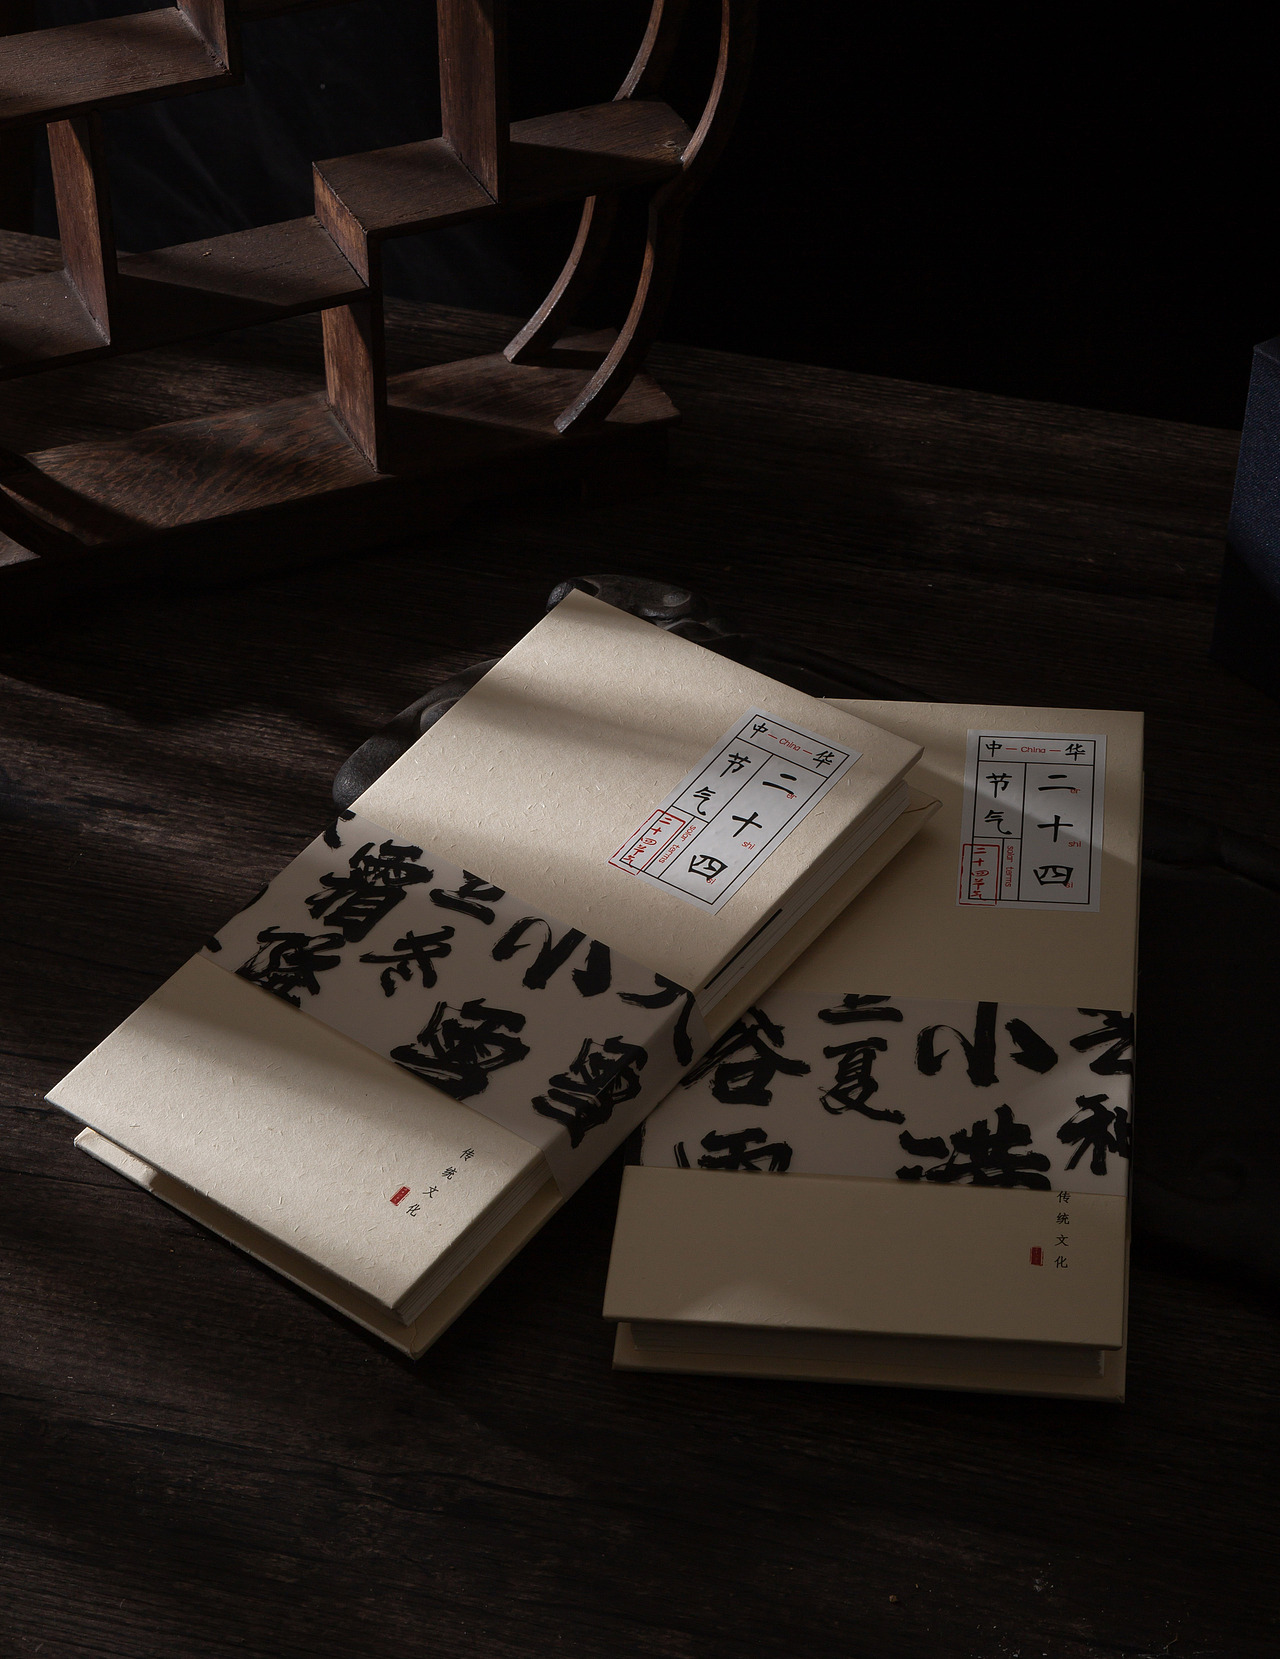 中 — China — 华
二十四
er
shi
si
节气
solar terms
二十四节气
霜 立冬 小雪
雪
传统文化
中 — China — 华
二十四
er
shi
si
节气
solar terms
二十四节气
谷雨 立夏 小满 芒种
传统文化